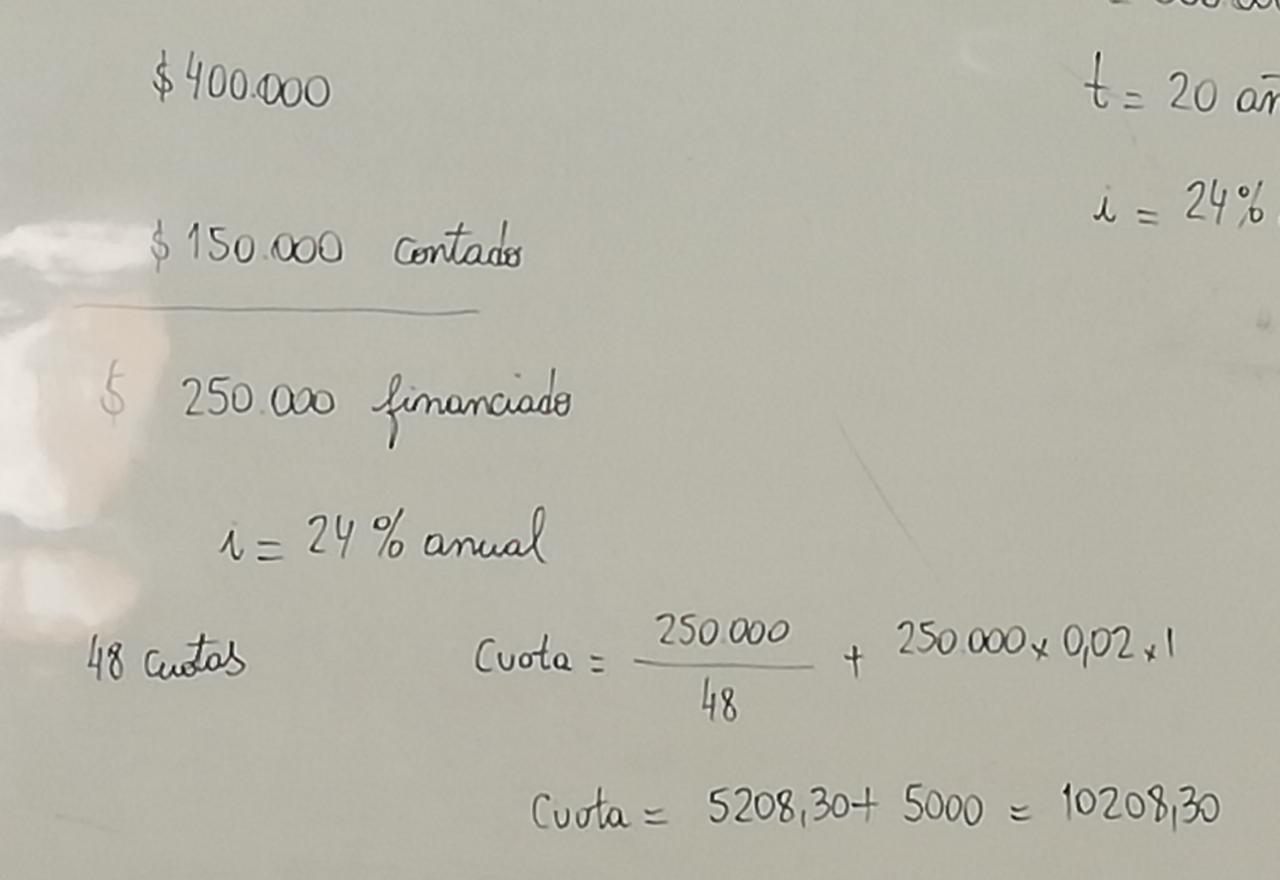 $ 400.000
$ 150.000 contado
$ 250.000 financiado
i = 24 % anual
48 cuotas
Cuota = 250.000 / 48 + 250.000 x 0,02 x 1
Cuota = 5208,30 + 5000 = 10208,30
t = 20
i = 24%